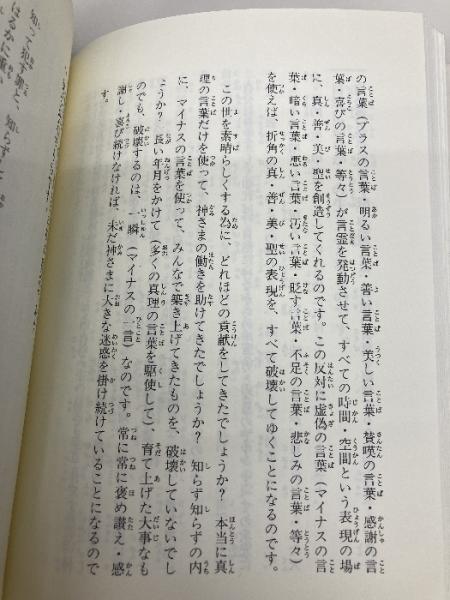 の言葉(プラスの言葉・明るい言葉・善い言葉・美しい言葉・賛嘆の言葉・感謝の言
葉・喜びの言葉・等々)が言霊を発動させて、すべての時間・空間という表現の場
に、真・善・美・聖を創造してくれるのです。この反対に虚偽の言葉(マイナスの言
葉・暗い言葉・悪い言葉・汚い言葉・貶す言葉・不足の言葉・悲しみの言葉・等々)
を使えば、折角の真・善・美・聖の表現を、すべて破壊してゆくことになるのです。
この世を素晴らしくする為に、どれほどの貢献をしてきたでしょうか? 本当に真
理の言葉だけを使って、神さまの働きを助けてきたでしょうか? 知らず知らずの内
に、マイナスの言葉を使って、みんなで築き上げてきたものを、破壊していないでし
ょうか? 長い年月をかけて(多くの真理の言葉を駆使して)、育て上げた大事なも
のでも、破壊するのは、一瞬(マイナスの一言)なのです。常に常に褒め讃え・感
謝し・喜び続けなければ、未だ神さまに大きな迷惑を掛け続けていることになるので
す。
知って犯す罪と、知らずし
はるかに重